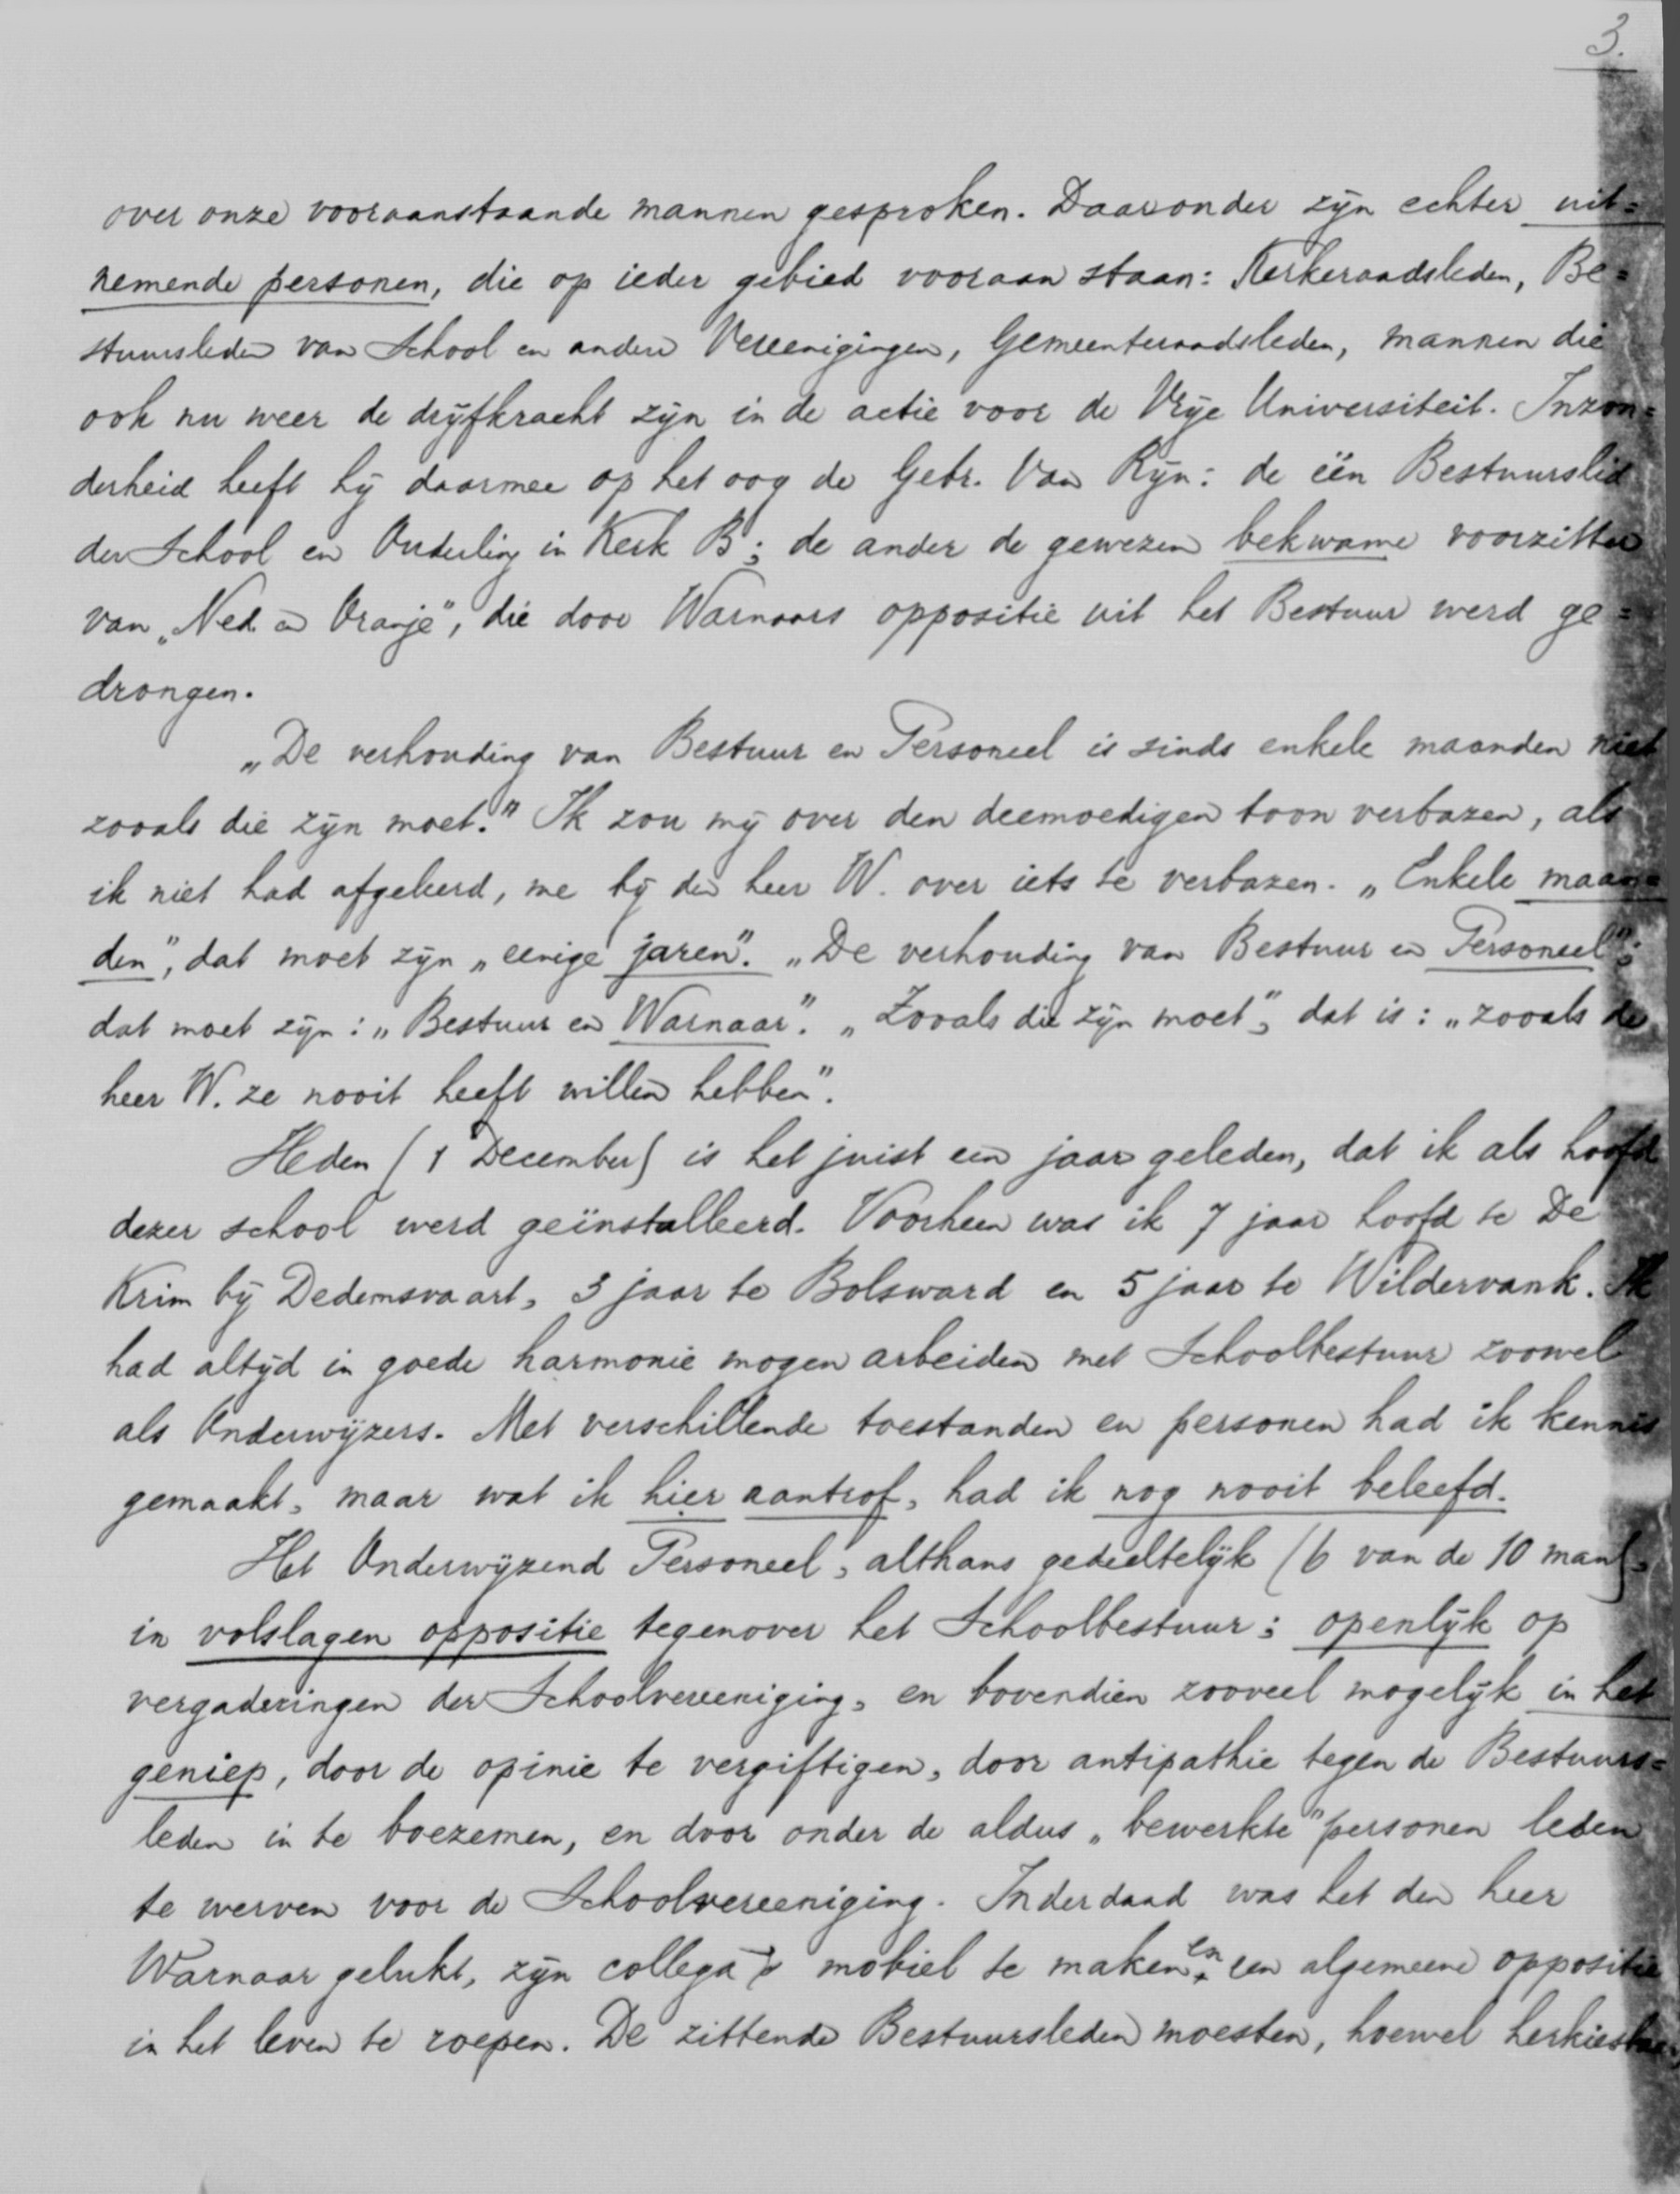 3.
over onze vooraanstaande mannen gesproken. Daaronder zijn echter uit=
nemende personen, die op ieder gebied vooraan staan: Kerkeraadsleden, Be=
stuursleden van School en andere Vereenigingen, Gemeenteraadsleden, mannen die
ook nu weer de drijfkracht zijn in de actie voor de Vrije Universiteit. Inzon=
derheid heeft hij daarmee op het oog de Gebr. Van Rijn: de één Bestuurslid
der School en Ouderling in Kerk B; de ander de gewezen bekwame voorzitter
van „Ned. en Oranje", die door Warnaars oppositie uit het Bestuur werd ge=
drongen.
„De verhouding van Bestuur en Personeel is sinds enkele maanden niet
zooals die zijn moet." Ik zou mij over den deemoedigen toon verbazen, als
ik niet had afgeleerd, me bij den heer W. over iets te verbazen. „Enkele maan=
den", dat moet zijn „eenige jaren". „De verhouding van Bestuur en Personeel";
dat moet zijn: „Bestuur en Warnaar". „Zooals die zijn moet", dat is: „zooals de
heer W. ze nooit heeft willen hebben".
Heden (1 December) is het juist een jaar geleden, dat ik als hoofd
dezer school werd geïnstalleerd. Voorheen was ik 7 jaar hoofd te De
Krim bij Dedemsvaart, 3 jaar te Bolsward en 5 jaar te Wildervank. Ik
had altijd in goede harmonie mogen arbeiden met Schoolbestuur zoowel
als Onderwijzers. Met verschillende toestanden en personen had ik kennis
gemaakt, maar wat ik hier aantrof, had ik nog nooit beleefd.
Het Onderwijzend Personeel, althans gedeeltelijk (6 van de 10 man),
in volslagen oppositie tegenover het Schoolbestuur; openlijk op
vergaderingen der Schoolvereeniging, en bovendien zooveel mogelijk in het
geniep, door de opinie te vergiftigen, door antipathie tegen de Bestuurs=
leden in te boezemen, en door onder de aldus „bewerkte" personen leden
te werven voor de Schoolvereeniging. Inderdaad was het den heer
Warnaar gelukt, zijn collega's mobiel te maken en een algemeene oppositie
in het leven te roepen. De zittende Bestuursleden moesten, hoewel herkiesbaar,